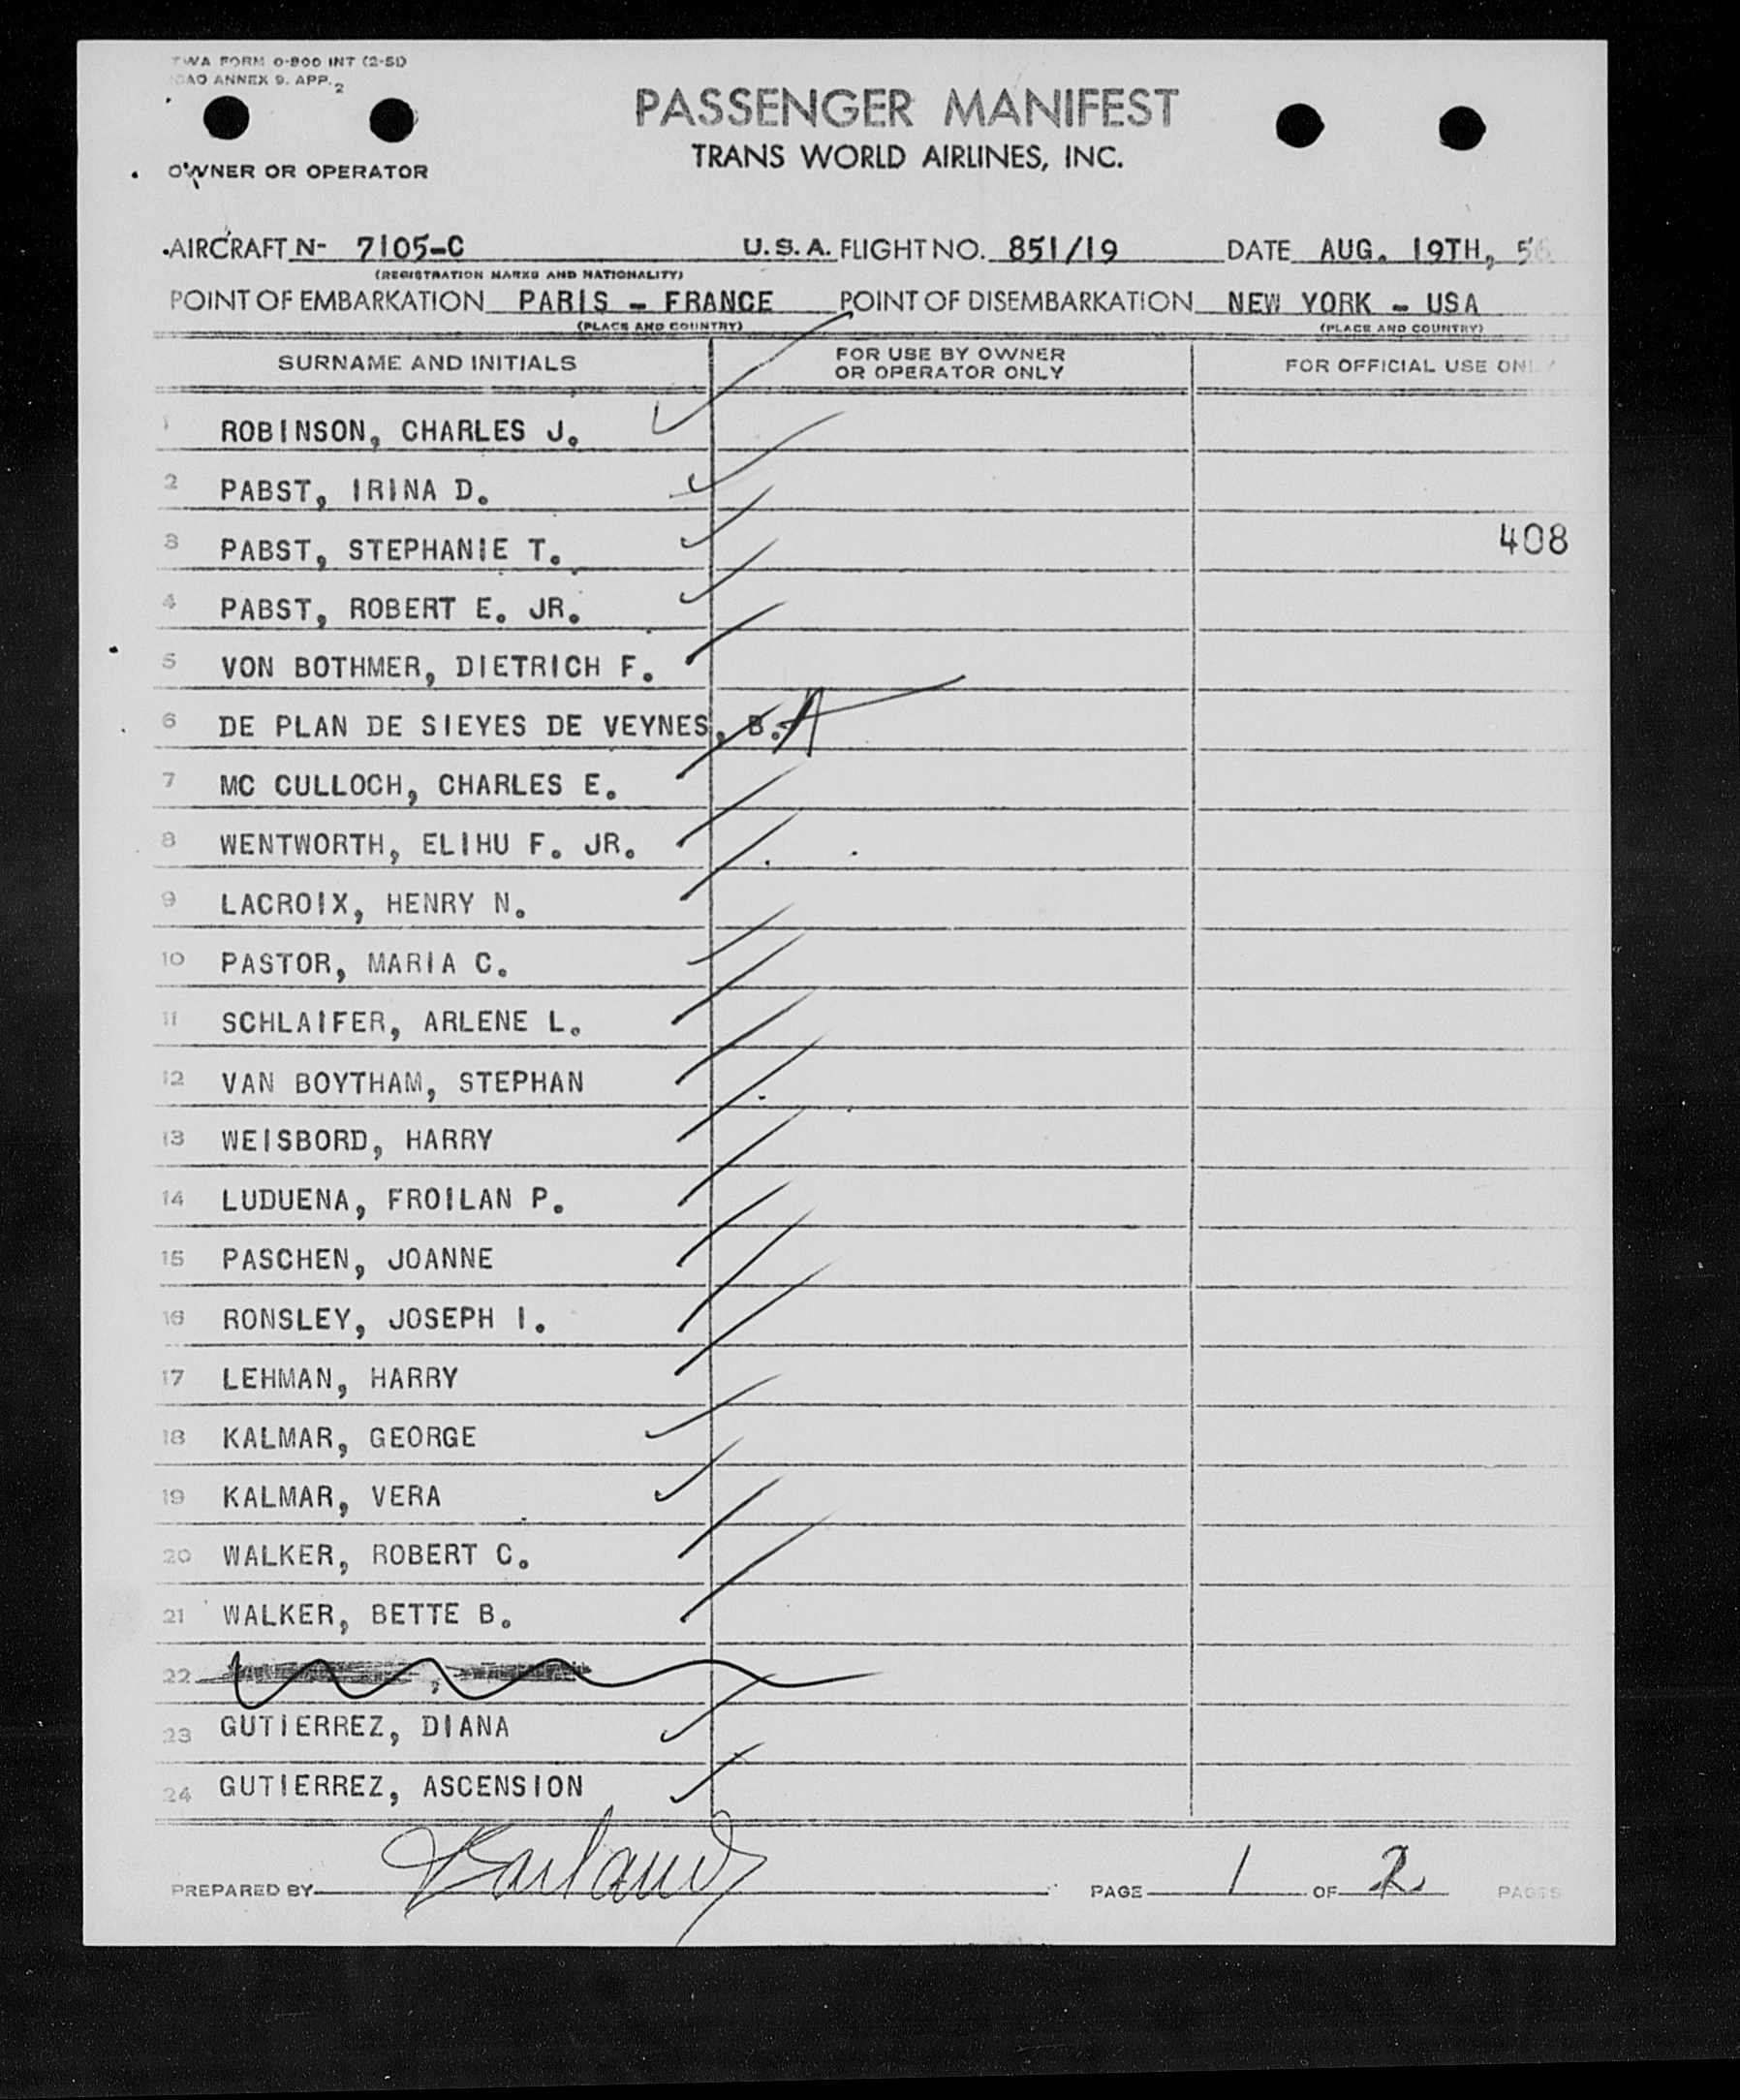 TWA FORM 0-800 INT (2-51)
ICAO ANNEX 9. APP. 2
PASSENGER MANIFEST
TRANS WORLD AIRLINES, INC.
OWNER OR OPERATOR
AIRCRAFT N- 7105-C U.S.A. FLIGHT NO. 851/19 DATE AUG. 19TH, 56
(REGISTRATION MARKS AND NATIONALITY)
POINT OF EMBARKATION PARIS - FRANCE POINT OF DISEMBARKATION NEW YORK - USA
(PLACE AND COUNTRY) (PLACE AND COUNTRY)
SURNAME AND INITIALS FOR USE BY OWNER OR OPERATOR ONLY FOR OFFICIAL USE ONLY
1 ROBINSON, CHARLES J.
2 PABST, IRINA D.
3 PABST, STEPHANIE T. 408
4 PABST, ROBERT E. JR.
5 VON BOTHMER, DIETRICH F.
6 DE PLAN DE SIEYES DE VEYNES, B.
7 MC CULLOCH, CHARLES E.
8 WENTWORTH, ELIHU F. JR.
9 LACROIX, HENRY N.
10 PASTOR, MARIA C.
11 SCHLAIFER, ARLENE L.
12 VAN BOYTHAM, STEPHAN
13 WEISBORD, HARRY
14 LUDUENA, FROILAN P.
15 PASCHEN, JOANNE
16 RONSLEY, JOSEPH I.
17 LEHMAN, HARRY
18 KALMAR, GEORGE
19 KALMAR, VERA
20 WALKER, ROBERT C.
21 WALKER, BETTE B.
22
23 GUTIERREZ, DIANA
24 GUTIERREZ, ASCENSION
PREPARED BY PAGE 1 OF 2 PAGES